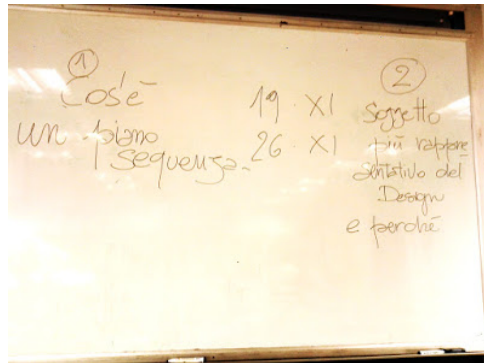 1
Cos'è
un piano
sequenza.
19 XI
26 XI
2
Soggetto
più rappre
sentativo del
Design
e perché